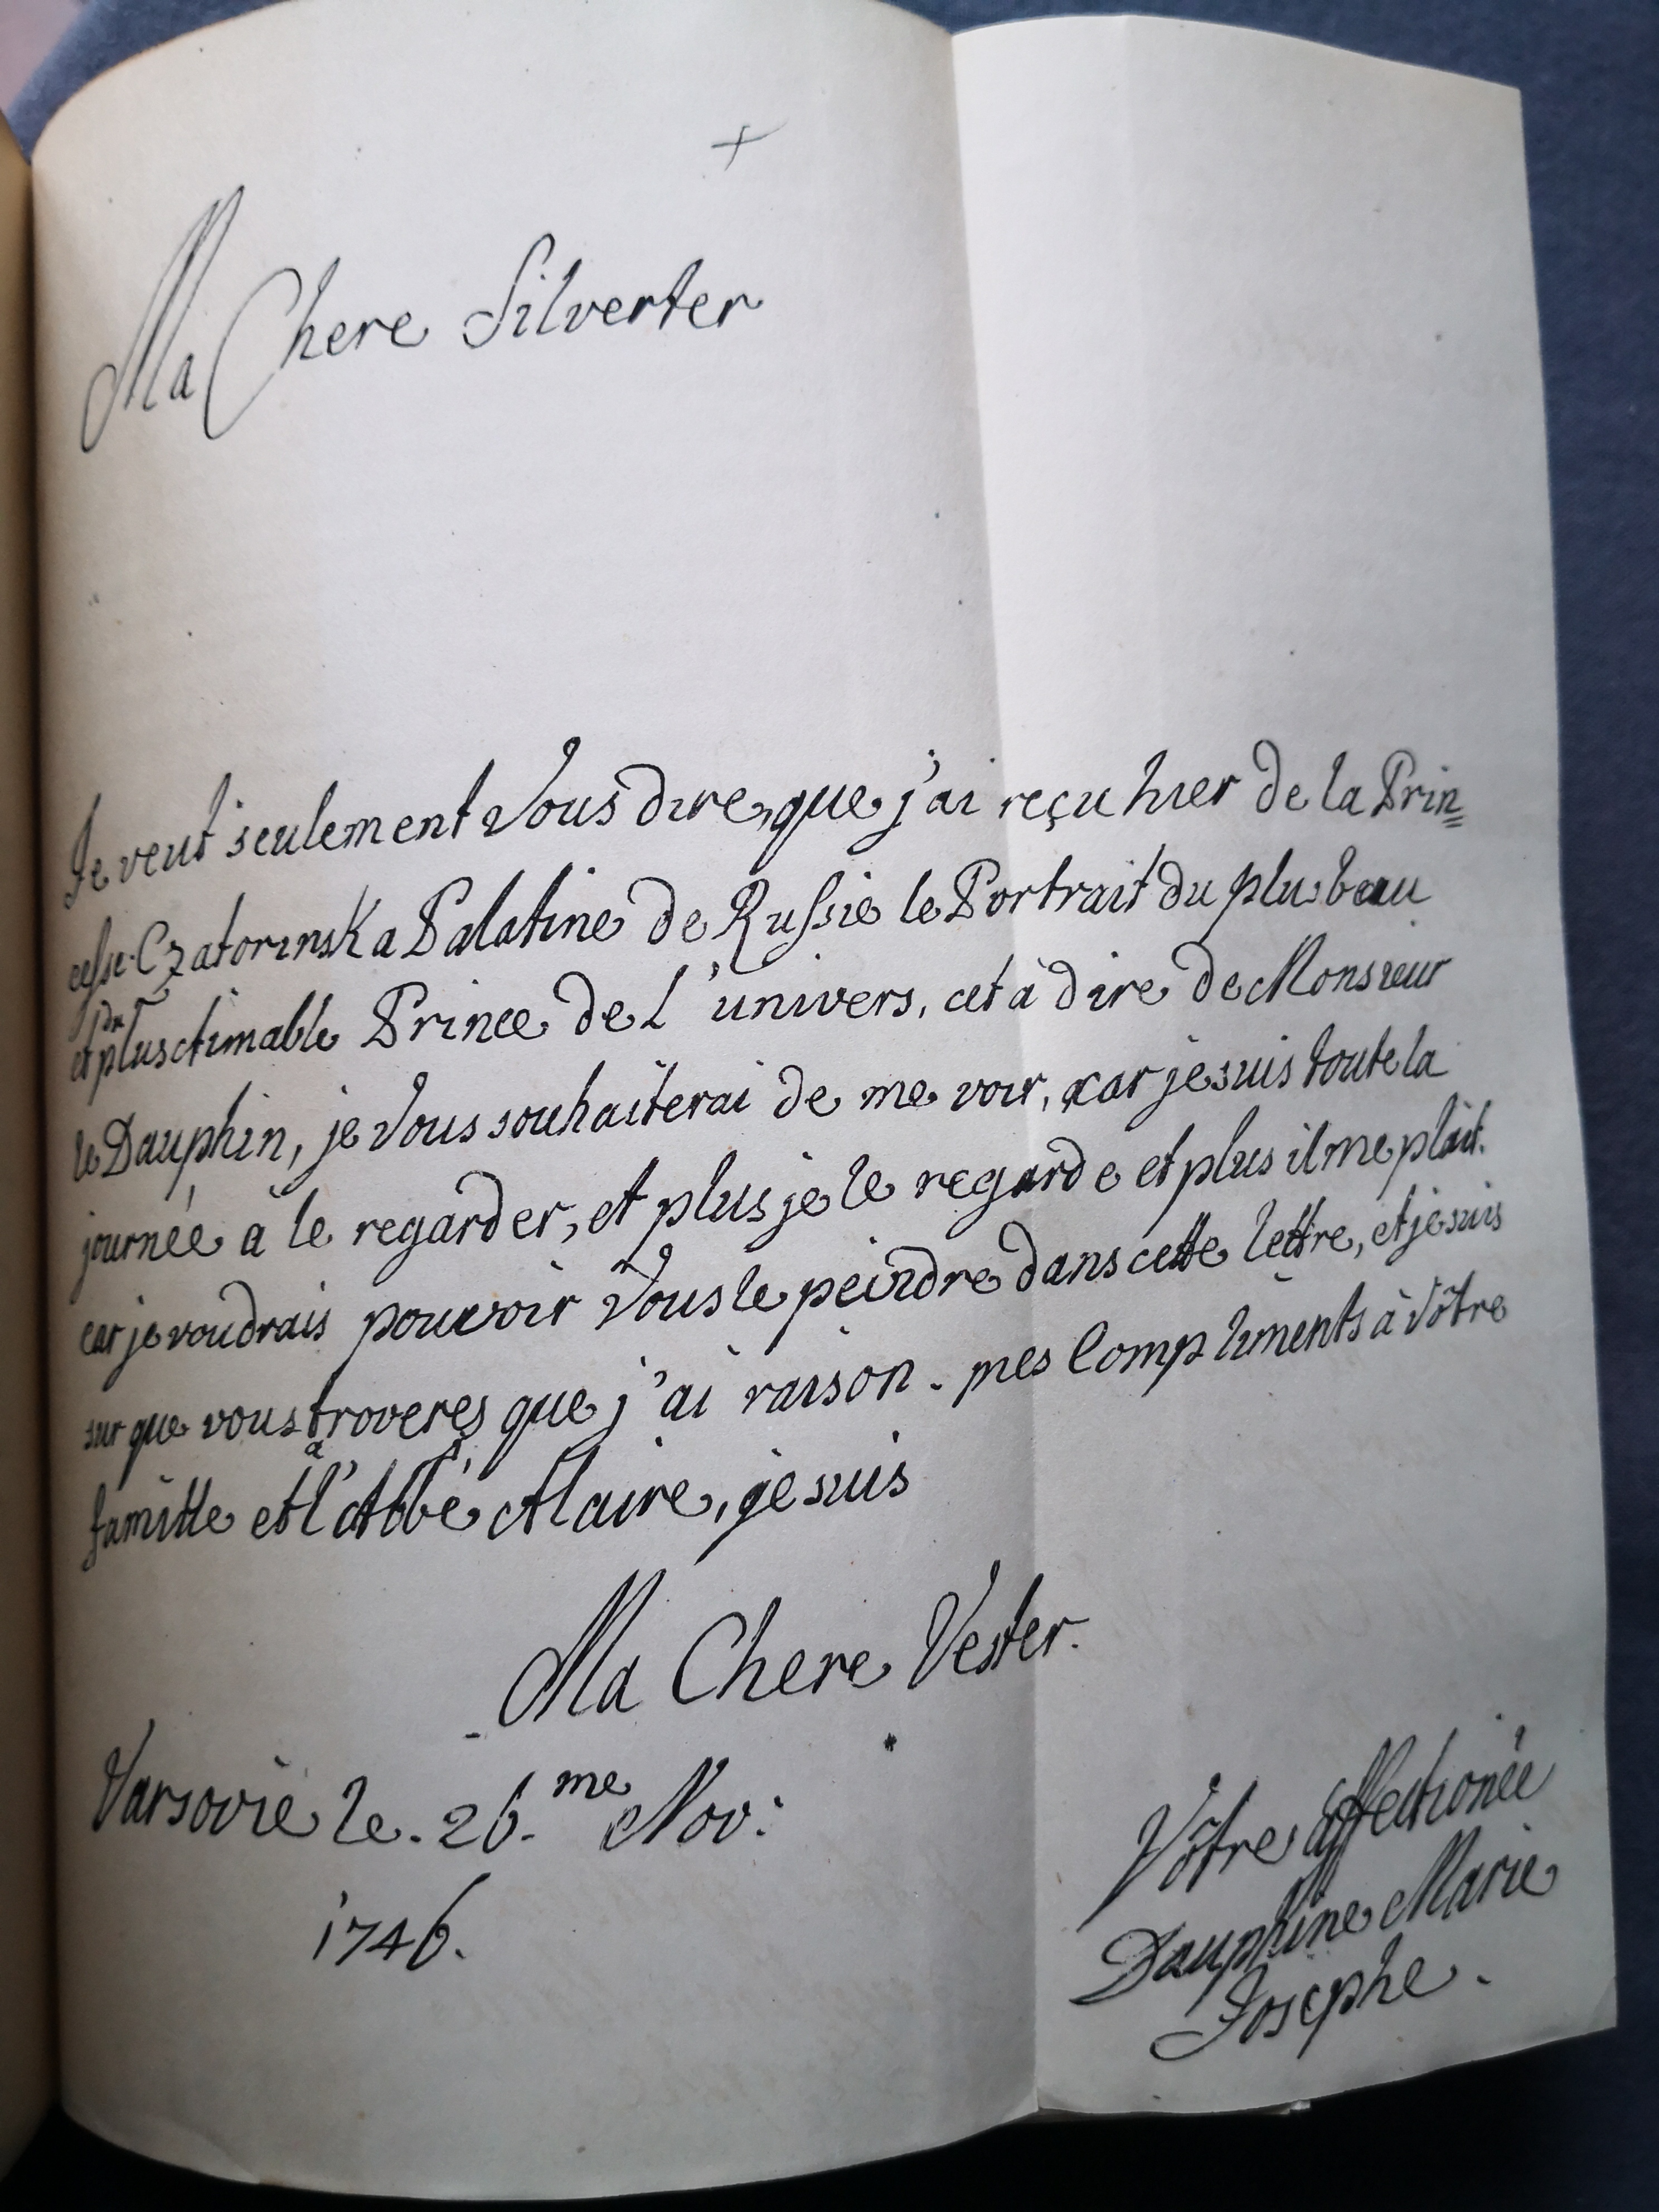 +
Ma Chere Silverter
Je veut seulement Vous dire, que j'ai reçu hier de la Prin=
cesse Czatorinska Palatine de Russie le Portrait du plus beau
du
et plus aimable Prince de L'univers, cet à dire de Monsieur
le Dauphin, je Vous souhaiterai de me voir, car je suis toute la
journée à le regarder, et plus je le regarde et plus il me plait.
car je voudrais pouvoir Vous le peindre dans cette lettre, et je suis
sur que vous troveres que j'ai raison. mes Compliments à Vôtre
à
famille et l'Abbé Alaire, je suis
Ma Chere Vester.
Varsovie le. 26.me Nov:
1746.
Vôtre affectionée
Dauphine Marie
Josephe.